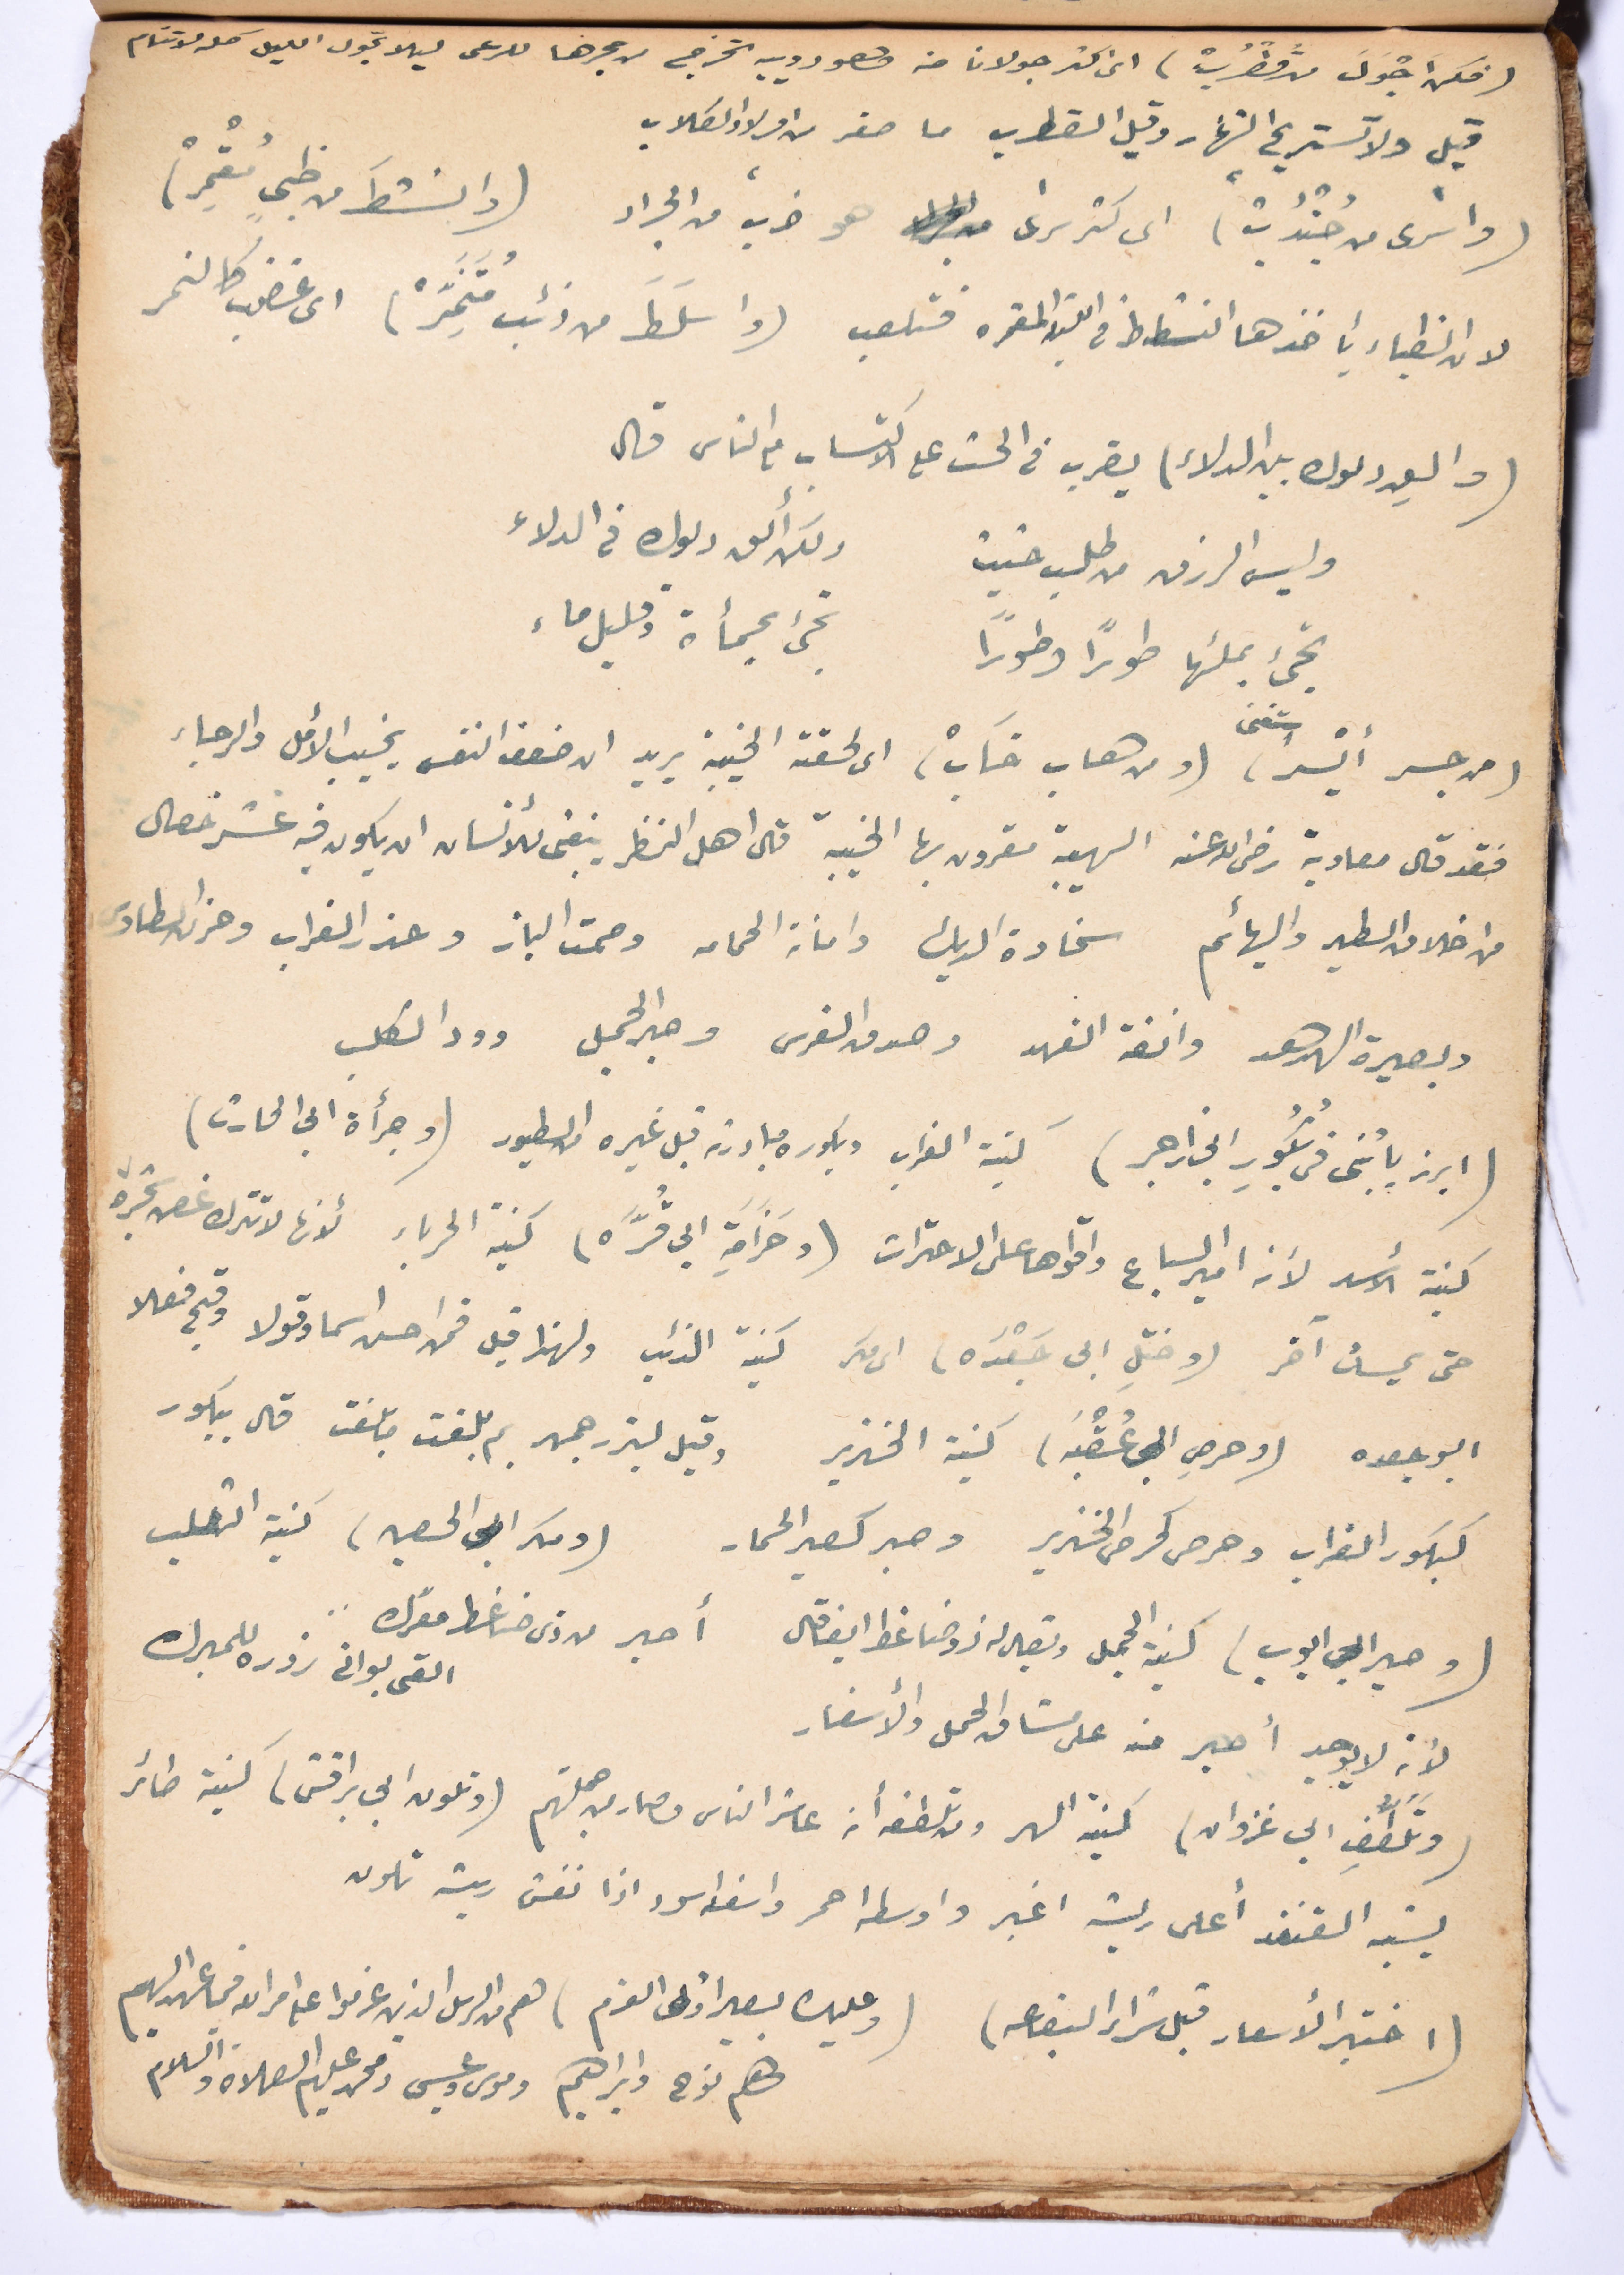 (فكن اجْوَلَ من قُطْرُبْ) اى اكثر جولانا منه وهو دويبه تخرج من جحرها للرعى ليلا تجول الليل كله لا تنام
قيل ولا تستريح النهار وقيل القطرب ما صغر من اولاد الكلاب
(واسرى من جُنْدُبْ) اى اكثر سرى هو ضرب من الجراد (وانشطَ من ظبىٍ مُقْمِرْ)
لان الظباء يأخذها النشاط فى الليلة المقمره فتلعب (واسلَطَ من ذئب مُتَنَمِّرْ) اى غضب كالنمر
(والق دلوك بين الدلاء) يضرب فى الحث على الاكتساب مع الناس قال
وليس الرزق من طلب حثيث ولكن ألق دلوك فى الدلاء
تجئ بملئها طورًا وطورًا تجئ بحمأة وقليل ماء
(من جسر أيْسر) استغنى (ومن هاب خَابْ) اى لحقته الخيبة يريد ان ضعف النفس يخيب الأمل والرجاء
فقد قال معاوية رضى الله عنه الهيبة مقرون بها الخيبة قال اهل النظر ينبغى للأنسان ان يكون فيه عشر خصال
من اخلاق الطير والبهائم سخاوة الديك وامانة الحمامه وصمت الباز وحذر الغراب وحزن الطاوس
وبصيرة الهدهد وانفة الفهد وصدق الفرس وصبر الجمل وود الكلب
(ابرز يابُنى فى بُكُورِ ابى زاجر) كنية الغراب وبكوره مبادرته قبل غيره من الطيور (وجرأة ابى الحارث)
كنية الأسد لأنه امير السباع واقواها على الاحتراث (وحَزَامَةِ ابى قُرَّه) كنية الحرباء لأنها لا تترك غصن شجرة
حتى يمسك آخر (وختلِ ابى جَعْدَه) اى مكر كنية الذئب ولهذا قيل فمن احسن اسما وقولا وقبح فعلا
ابو جعده (وحرصِ ابى عُقْبَه) كنية الخنزير وقيل لبزرجمهر بم بلغت ما بلغت قال ببكور
كبكور الغراب وحرص كحرص الخنزير وصبر كصبر الحمار (ومكر ابى الحصين) كنية الثعلب
(وصبر ابى ايوب) كنية الجمل ويقال له ذو ضاغط ايضا قال أصبر من ذى ضاغط معرك
القى بوانى زوره للمبرك
لأنه لا يوجد أصبر منه على مشاق الحمل والأسفار
(وتَلَطُّفِ ابى غزوان) كنية الهر ومن تلطفه أنه عاشر الناس وصار من جملتهم (وتلون ابى براقش) كنية طائر
يشبه القنفذ أعلى ريشه اغبر واوسطه احمر واسفله اسود اذا نفش ريشه تلون
(اختبر الأسعار قبل شراء البضاعه) (وعليك بصبر اولى العزم) هم من الرسل الذين عزموا على امر الله فيما عهد اليهم
هم نوح وابراهيم وموسى وعيسى ومحمد عليهم الصلاة والسلام